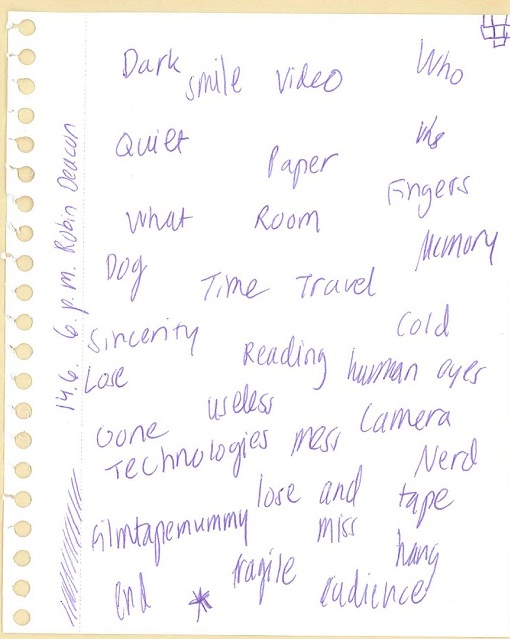 14.6. 6 p.m. Robin Deacon
Dark smile Video Who
Quiet Paper
Fingers
What Room
Memory
Dog Time Travel
Sincerity Cold
Lose Reading human eyes
useless
Gone Camera
Technologies mess Nerd
lose and tape
filmtapemummy miss
fragile hang
end * audience